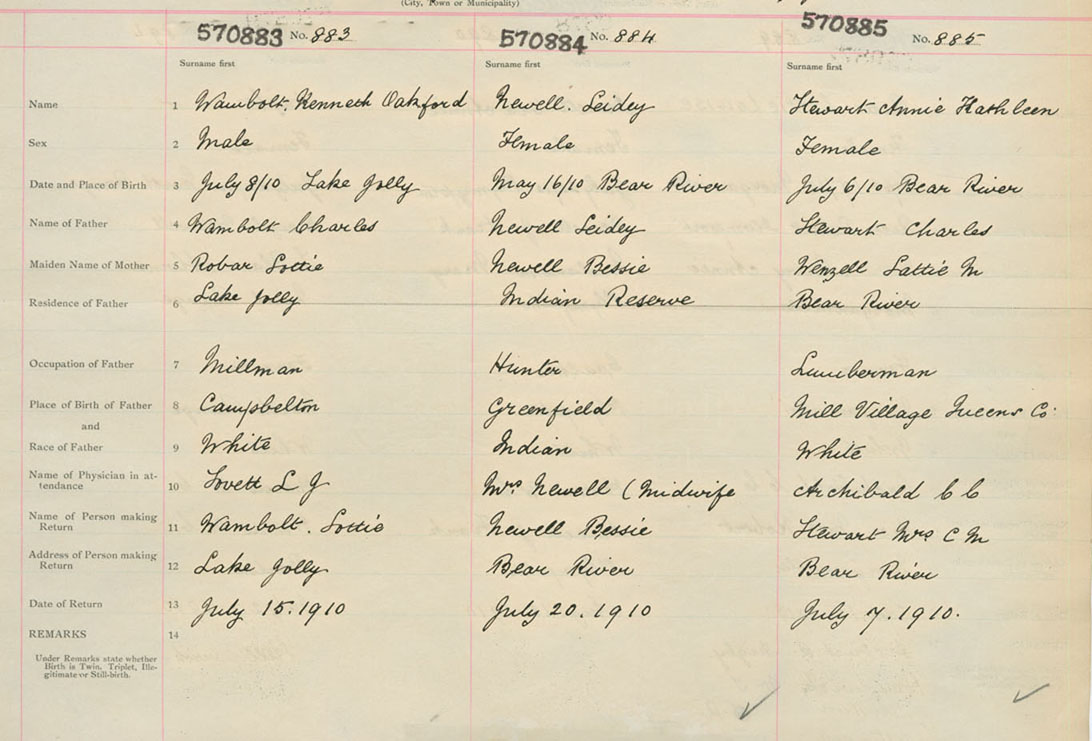 (City, Town or Municipality)
570883 No. 883 570884 No. 884 570885 No. 885
Surname first Surname first Surname first
Name 1 Wambolt, Kenneth Oakford Newell. Leidey Stewart Annie Kathleen
Sex 2 Male Female Female
Date and Place of Birth 3 July 8/10 Lake Jolly May 16/10 Bear River July 6/10 Bear River
Name of Father 4 Wambolt Charles Newell Leidey Stewart Charles
Maiden Name of Mother 5 Robar Lottie Newell Bessie Wenzell Lattie M
Residence of Father 6 Lake Jolly Indian Reserve Bear River
Occupation of Father 7 Millman Hunter Lumberman
Place of Birth of Father 8 Campbelton Greenfield Mill Village Queens Co.
and
Race of Father 9 White Indian White
Name of Physician in at-
tendance 10 Lovett L J Mrs Newell (Midwife Archibald C C
Name of Person making
Return 11 Wambolt. Lottie Newell Bessie Stewart Mrs C M
Address of Person making
Return 12 Lake Jolly Bear River Bear River
Date of Return 13 July 15.1910 July 20.1910 July 7.1910.
REMARKS 14
Under Remarks state whether
Birth is Twin, Triplet, Ille-
gitimate or Still-birth.